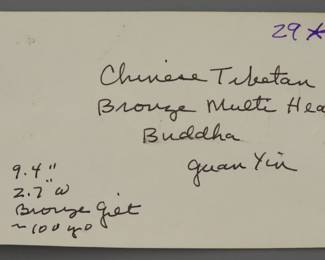 29 *
Chinese Tibetan
Bronze Multi Hea
Buddha
Guan Yin
9.4"
2.7" W
Bronze Gilt
~ 100 yo